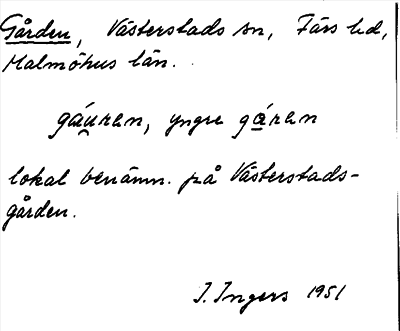 Gården, Västerstads sn, Färs hd,
Malmöhus län.
gáu̯ʀən, yngre gá̱ʀən
lokal benämn. på Västerstads-
gården.
I. Ingers 1951